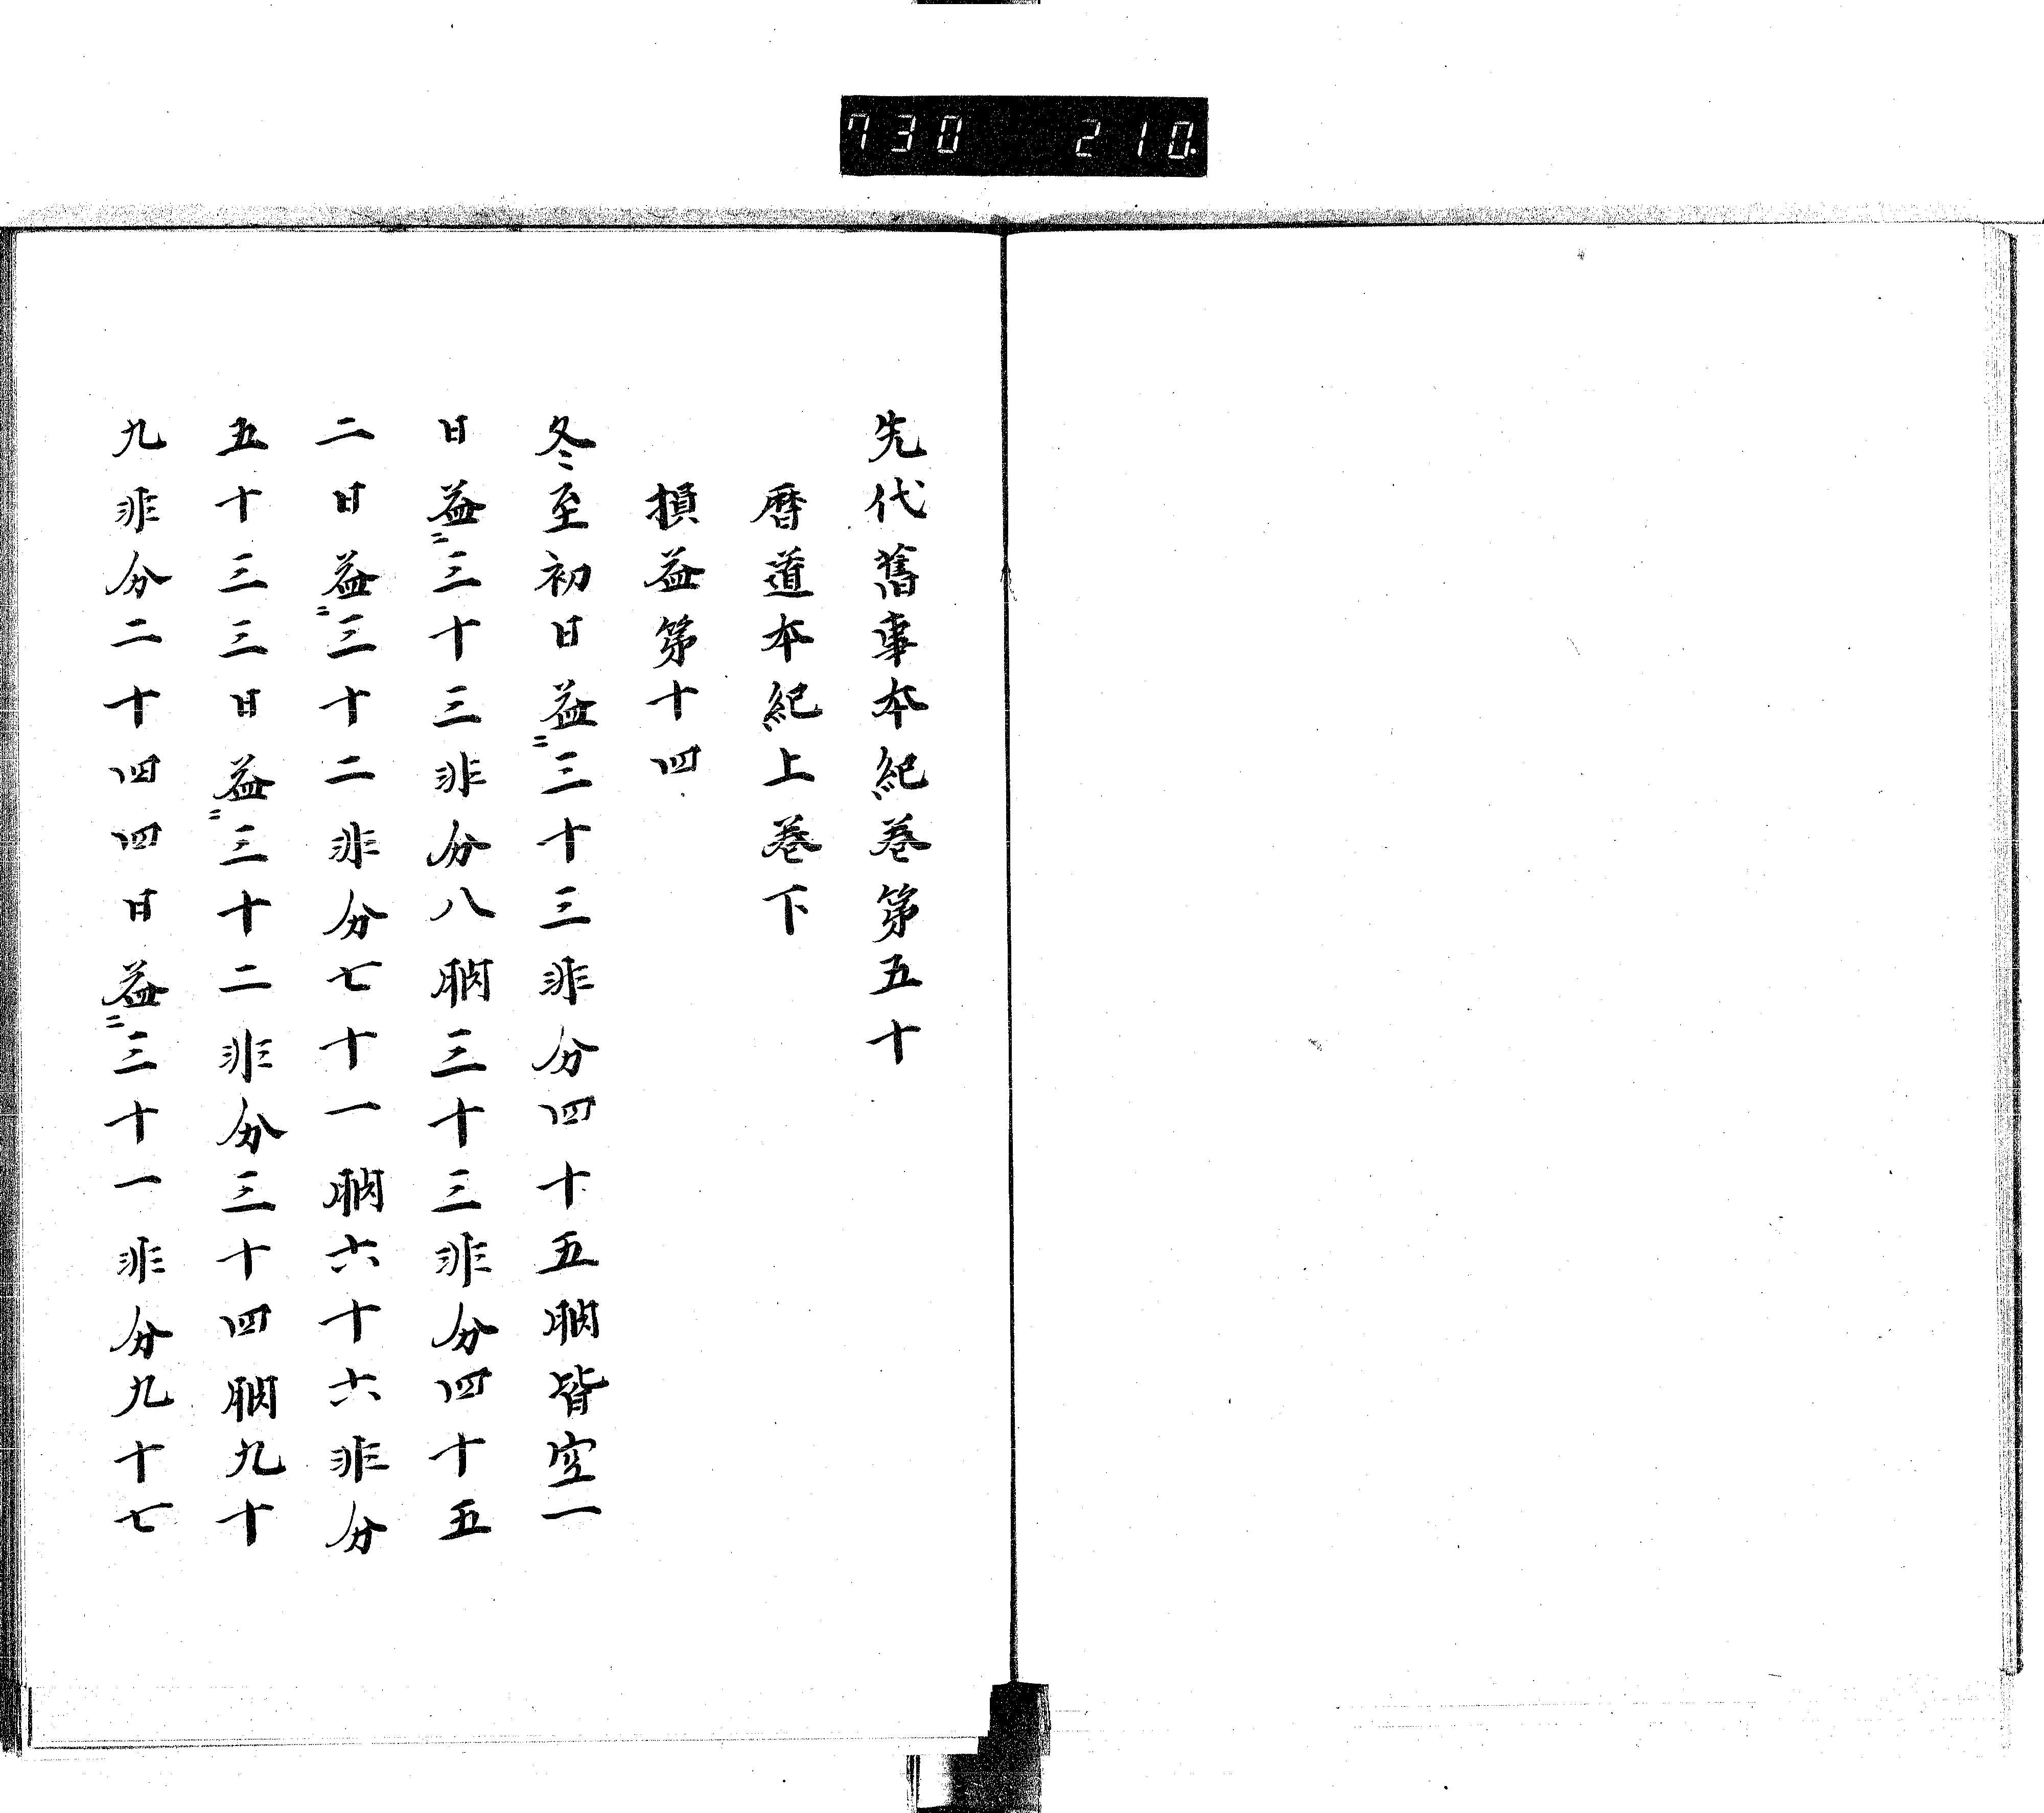 730 210.
先代舊事本紀巻第五十
暦道本紀上巻下
損益第十四
冬至初日益〻三十三非分四十五朒皆空一
日益〻三十三非分八朒三十三非分四十五
二日益〻三十二非分七十一朒六十六非分
五十三三日益〻三十二非分三十四朒九十
九非分二十四四日益〻三十一非分九十七